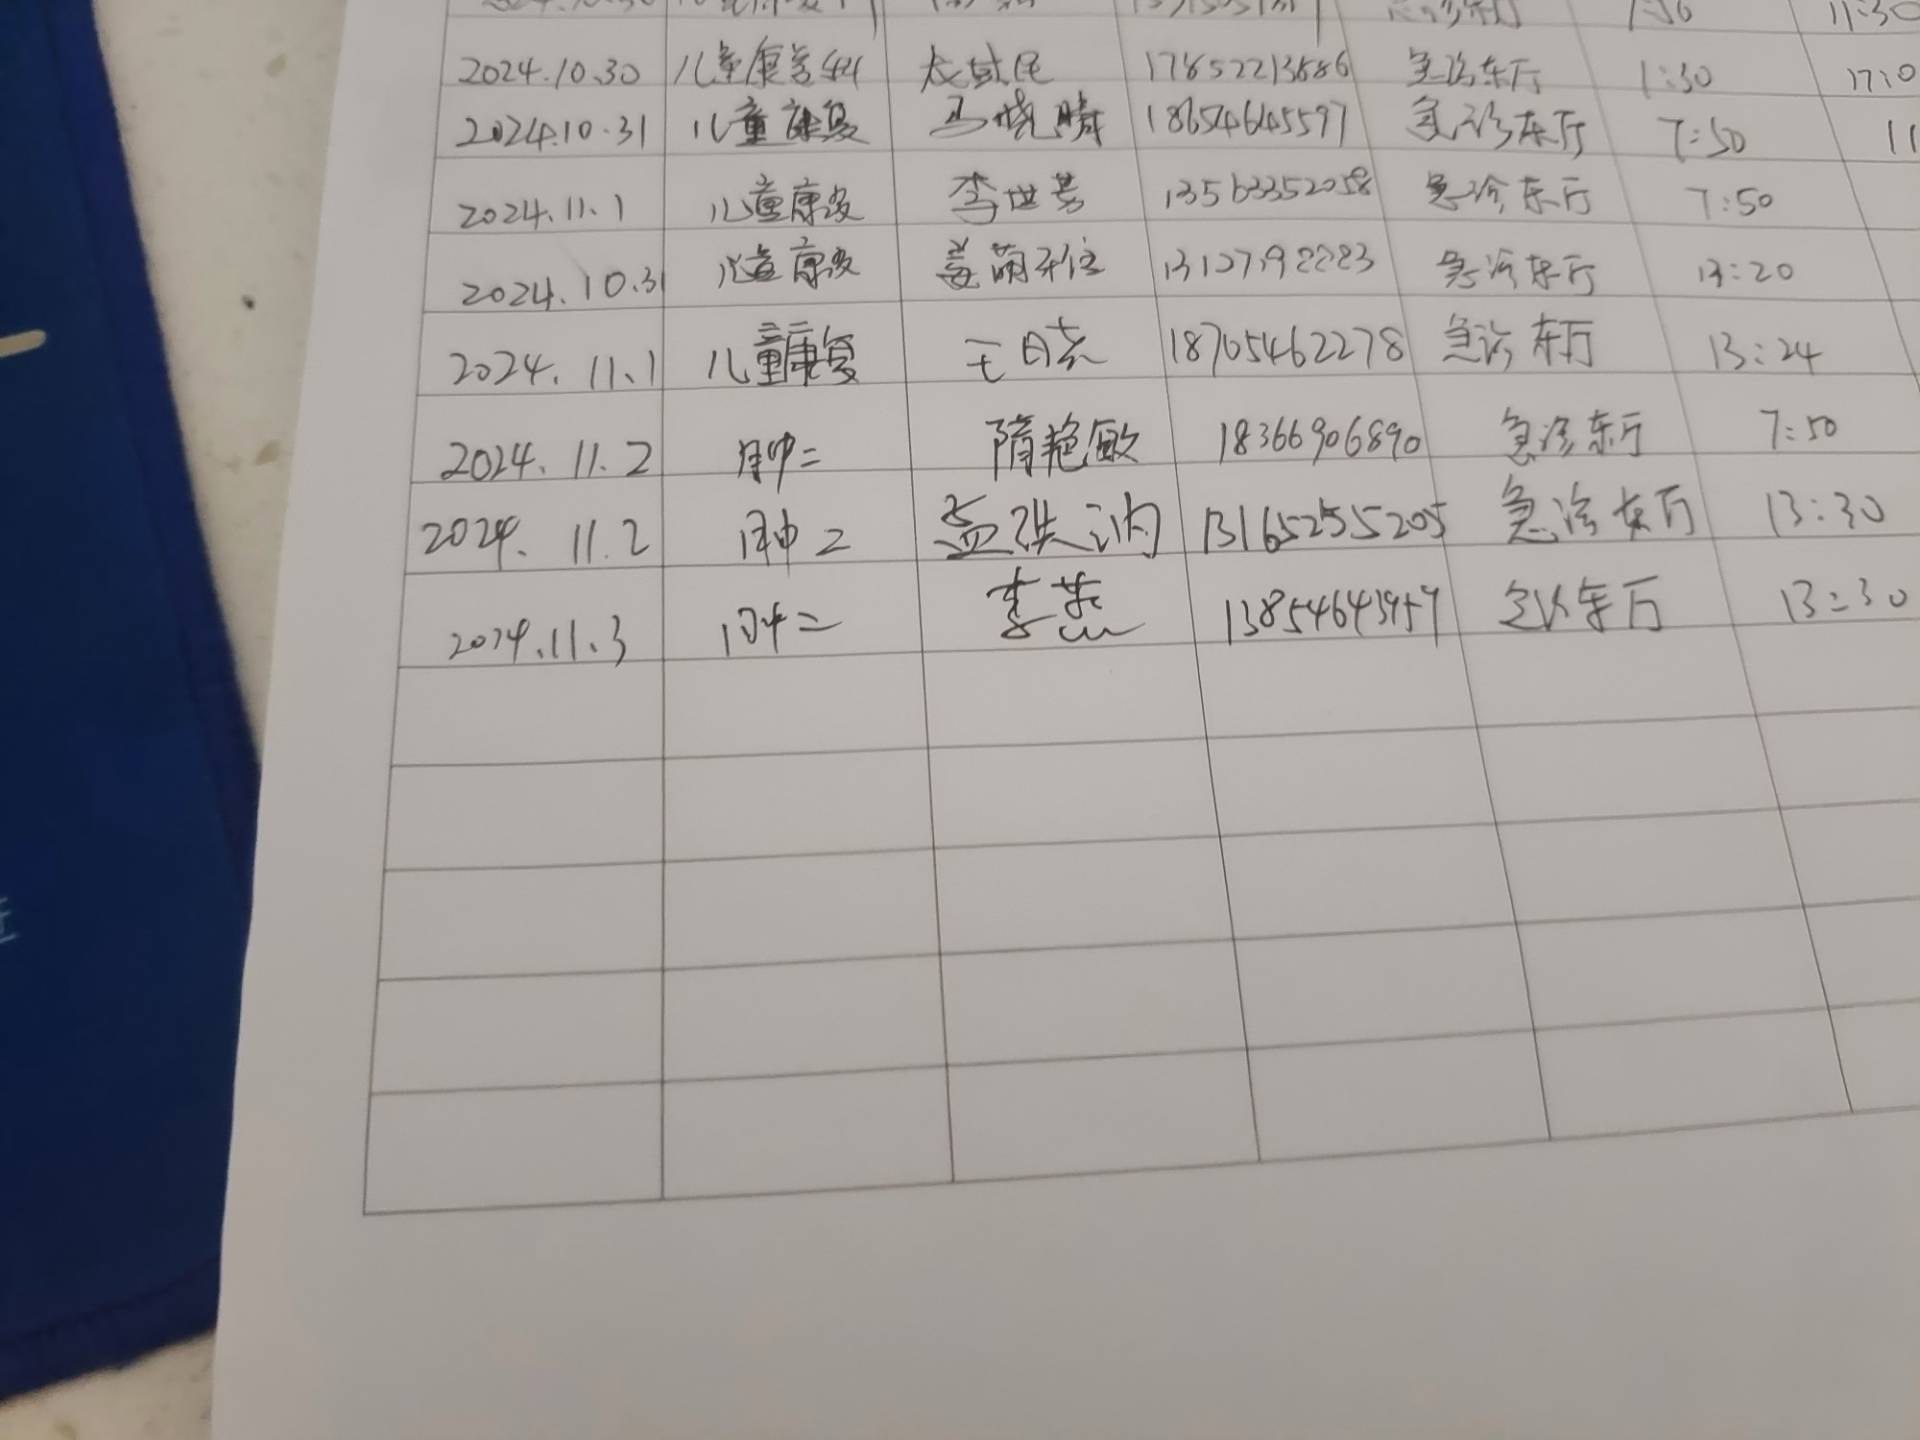 2024.10.30 儿童康复科 17852213886 急诊东厅 1:30 17:0
2024.10.31 儿童康复 马晓晴 18654645597 急诊东厅 7:50 11
2024.11.1 儿童康复 李世芳 13563352058 急诊东厅 7:50
2024.10.31 儿童康复 姜萌 13127192223 急诊东厅 13:20
2024.11.1 儿童康复 王日志 18705462278 急诊东厅 13:24
2024.11.2 肿二 隋艳敏 18366906890 急诊东厅 7:50
2024.11.2 肿二 13165255205 急诊东厅 13:30
2024.11.3 肿二 李燕 急诊东厅 13:30